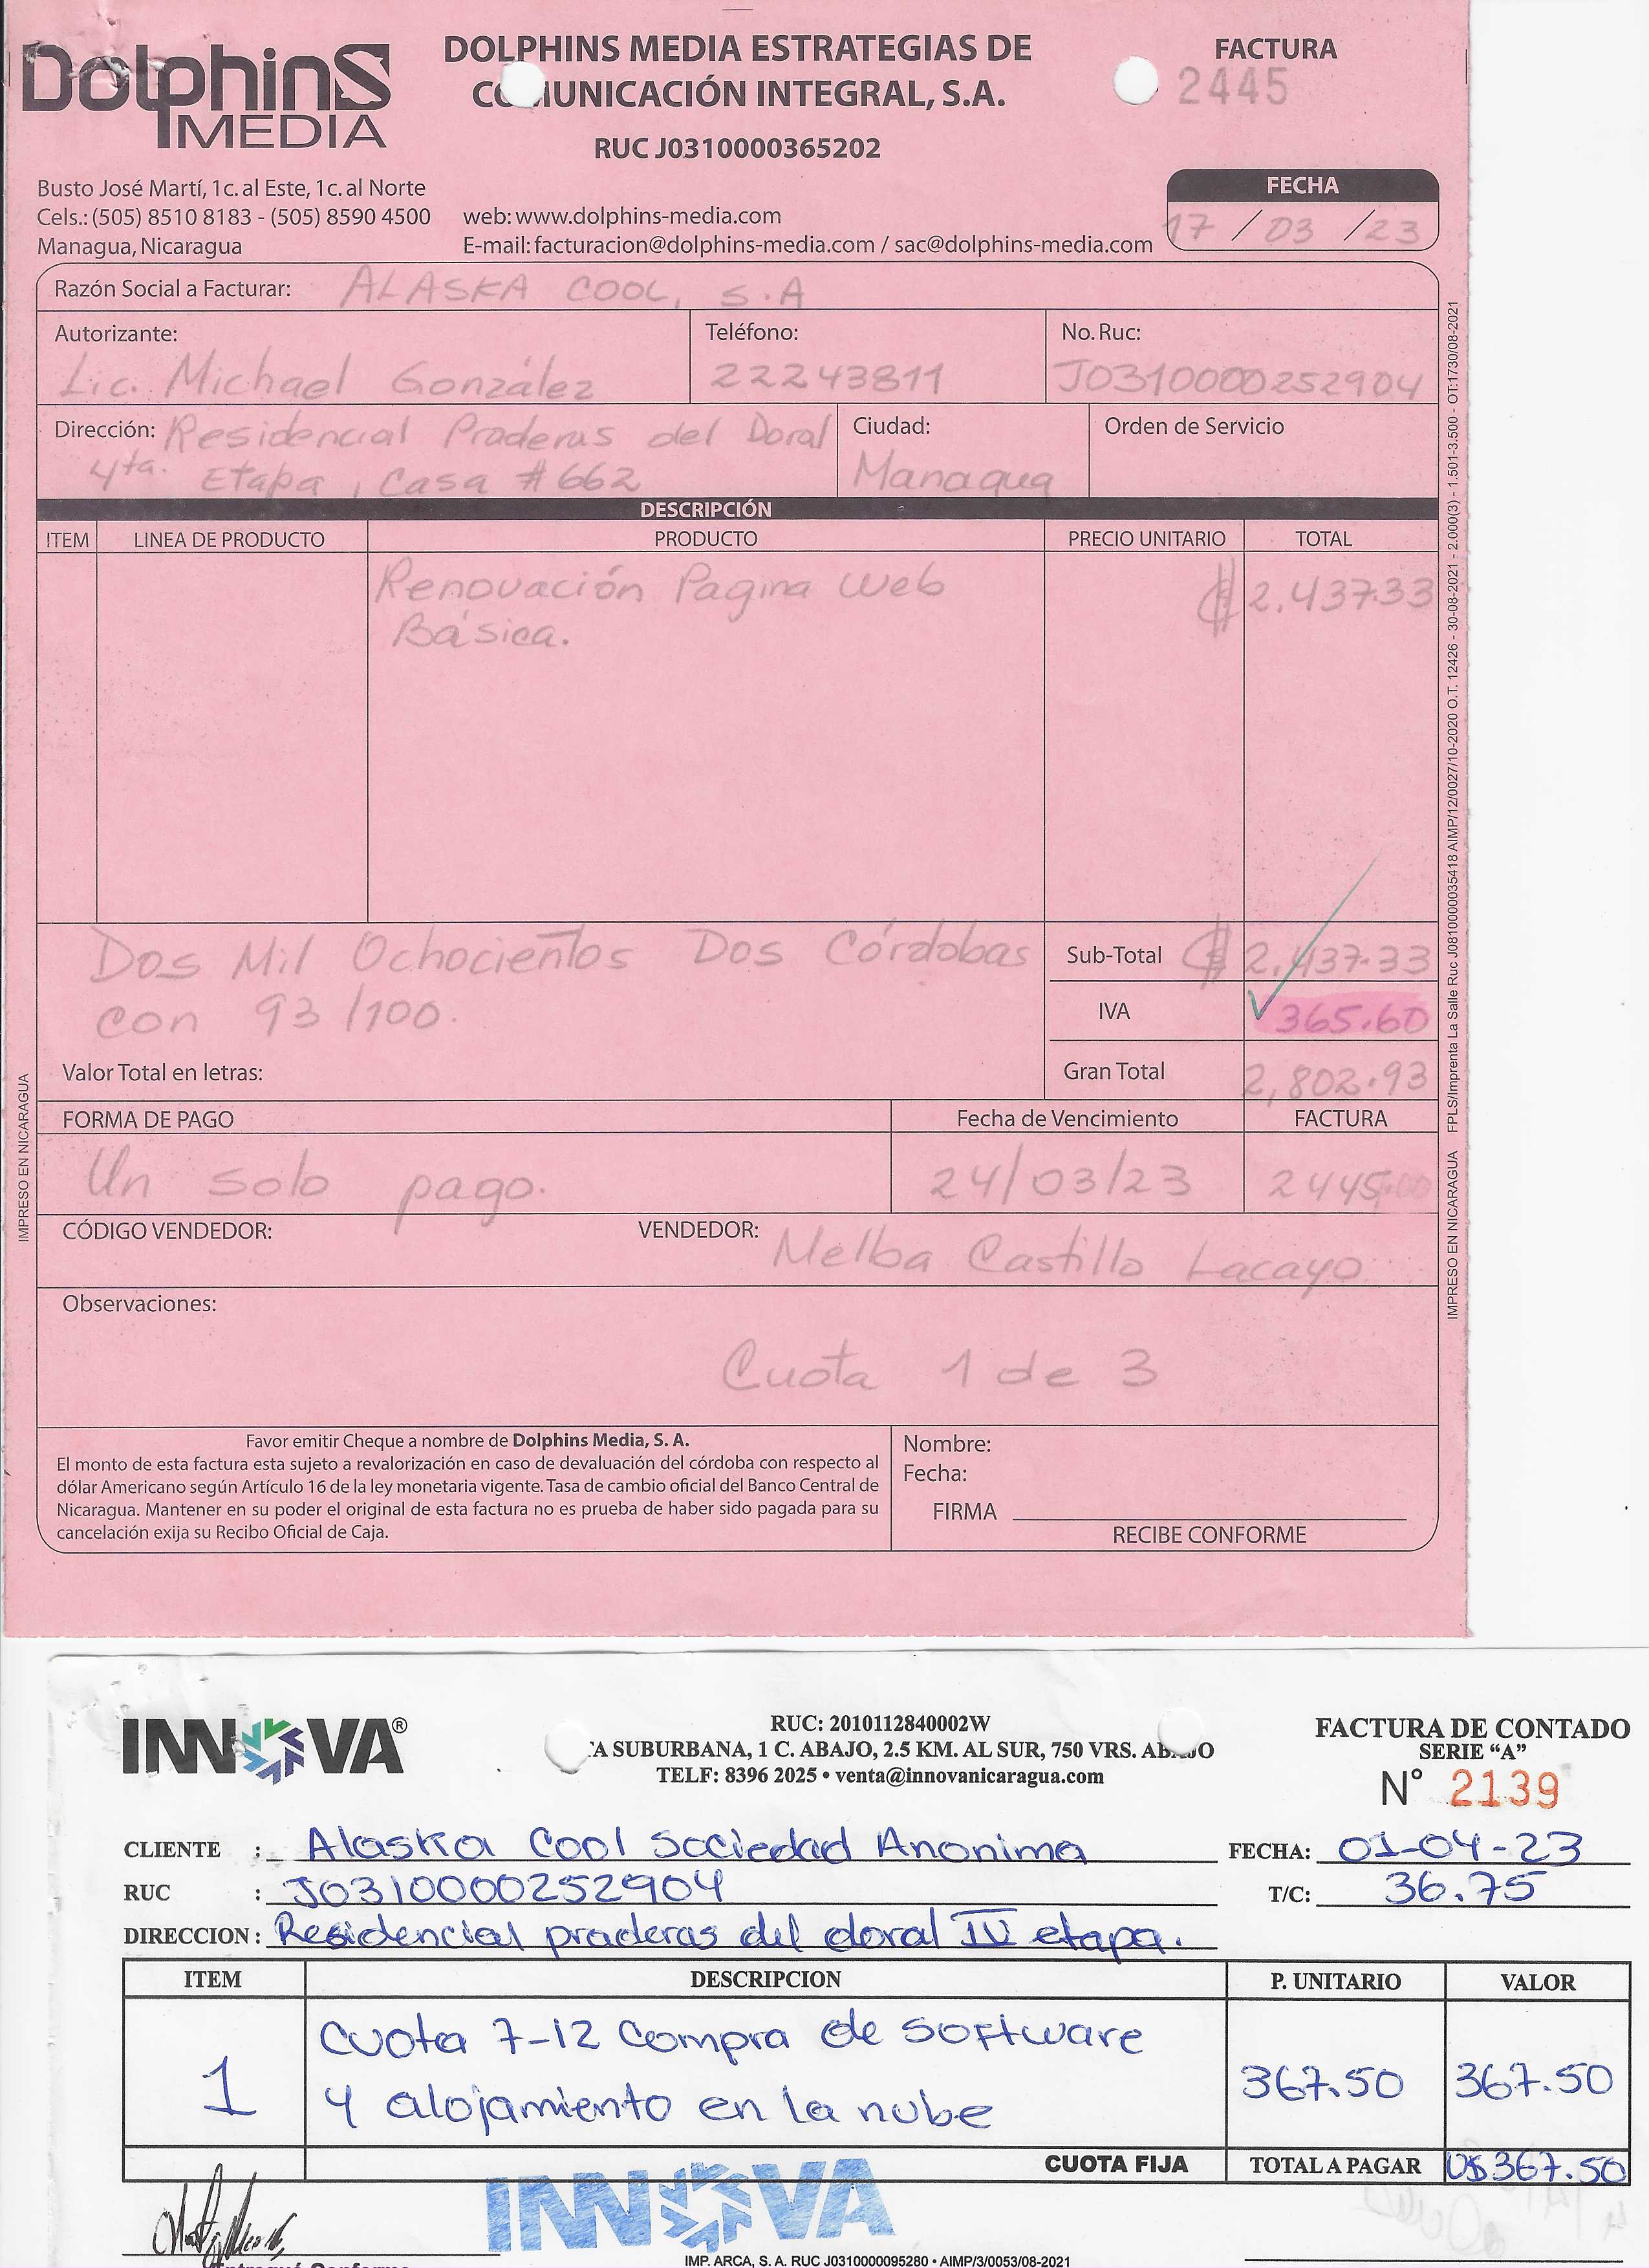 Dolphins
MEDIA
DOLPHINS MEDIA ESTRATEGIAS DE
COMUNICACIÓN INTEGRAL, S.A.
RUC J0310000365202
FACTURA
2445
Busto José Martí, 1c. al Este, 1c. al Norte
Cels.: (505) 8510 8183 - (505) 8590 4500
Managua, Nicaragua
web: www.dolphins-media.com
E-mail: facturacion@dolphins-media.com / sac@dolphins-media.com
FECHA
17 / 03 / 23
Razón Social a Facturar: ALASKA COOL, S.A
Autorizante: Lic. Michael González
Teléfono: 22243811
No. Ruc: J0310000252904
Dirección: Residencial Praderas del Doral
4ta. Etapa, Casa #662
Ciudad: Managua
Orden de Servicio
DESCRIPCIÓN
ITEM LINEA DE PRODUCTO PRODUCTO PRECIO UNITARIO TOTAL
Renovación Pagina Web C$ 2,437.33
Básica.
Dos Mil Ochocientos Dos Córdobas
con 93/100.
Valor Total en letras:
Sub-Total C$ 2,437.33
IVA 365.60
Gran Total 2,802.93
FORMA DE PAGO Fecha de Vencimiento FACTURA
Un solo pago. 24/03/23 2445
CÓDIGO VENDEDOR: VENDEDOR: Melba Castillo Lacayo
Observaciones:
Cuota 1 de 3
Favor emitir Cheque a nombre de Dolphins Media, S. A.
El monto de esta factura esta sujeto a revalorización en caso de devaluación del córdoba con respecto al
dólar Americano según Artículo 16 de la ley monetaria vigente. Tasa de cambio oficial del Banco Central de
Nicaragua. Mantener en su poder el original de esta factura no es prueba de haber sido pagada para su
cancelación exija su Recibo Oficial de Caja.
Nombre:
Fecha:
FIRMA
RECIBE CONFORME
IMPRESO EN NICARAGUA
IMPRESO EN NICARAGUA FPLS/Imprenta La Salle Ruc J0810000035418 AIMP/12/0027/10-2020 O.T. 12426 - 30-08-2021 - 2.000(3) - 1.501-3.500 - OT:1730/08-2021
INNOVA®
RUC: 2010112840002W
SUBURBANA, 1 C. ABAJO, 2.5 KM. AL SUR, 750 VRS. ABAJO
TELF: 8396 2025 • venta@innovanicaragua.com
FACTURA DE CONTADO
SERIE "A"
N° 2139
CLIENTE : Alaska Cool Sociedad Anonima
FECHA: 01-04-23
RUC : J0310000252904
T/C: 36.75
DIRECCION: Residencial praderas del doral IV etapa.
ITEM DESCRIPCION P. UNITARIO VALOR
1 Cuota 7-12 Compra de software 367.50 367.50
y alojamiento en la nube
CUOTA FIJA TOTAL A PAGAR U$367.50
INNOVA
Entregué Conforme
IMP. ARCA, S. A. RUC J0310000095280 • AIMP/3/0053/08-2021